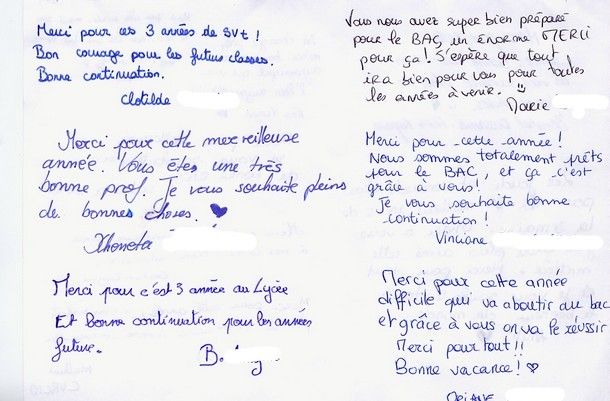 Merci pour ces 3 années de SVT !
Bon courage pour les futurs classes.
Bonne continuation.
Clotilde
Vous nous avez super bien préparé
pour le BAC, un énorme MERCI
pour ça! J'espère que tout
ira bien pour vous pour toutes
les années à venir.
Marie
Merci pour cette merveilleuse
année. Vous êtes une très
bonne prof. Je vous souhaite pleins
de bonnes choses. ♥
Xhoneta
Merci pour cette année!
Nous sommes totalement prêts
pour le BAC, et ça c'est
grâce à vous!
Je vous souhaite bonne
continuation!
Vinciane
Merci pour c'est 3 année au Lycée
Et Bonne continuation pour les années
future.
B.
Merci pour cette année
difficile qui va aboutir au bac
et grâce à vous on va le réussir
Merci pour tout!!
Bonne vacance! ♡